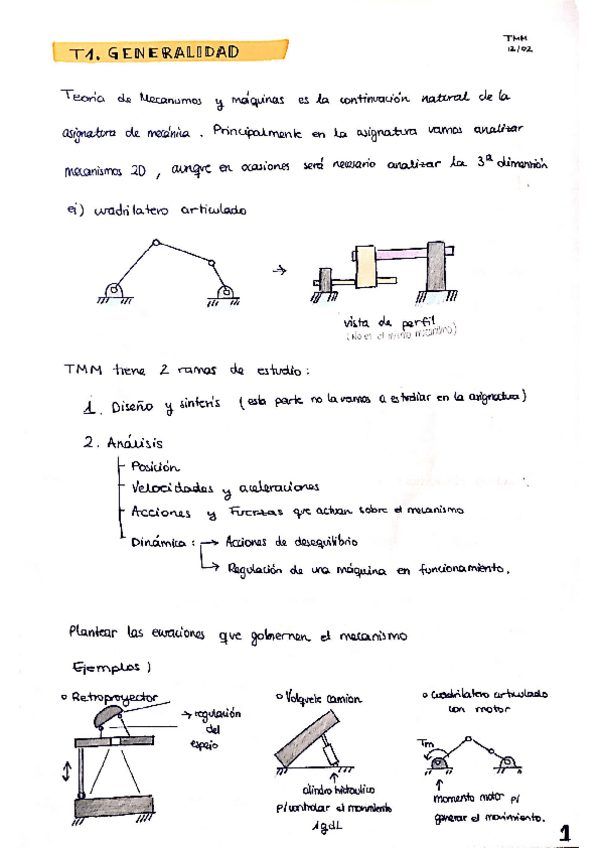 TMM
12/02
T1. GENERALIDAD
Teoría de Mecanismos y máquinas es la continuación natural de la
asignatura de mecánica. Principalmente en la asignatura vamos analizar
mecanismos 2D, aunque en ocasiones será necesario analizar la 3ª dimensión
ej) cuadrilatero articulado
vista de perfil
(No es el mismo mecanismo)
TMM tiene 2 ramas de estudio:
1. Diseño y sintesis (esta parte no la vamos a estudiar en la asignatura)
2. Análisis
Posición
Velocidades y aceleraciones
Acciones y Fuerzas que actuan sobre el mecanismo
Dinámica: → Acciones de desequilibrio
→ Regulación de una máquina en funcionamiento.
Plantear las ecuaciones que gobiernen el mecanismo
Ejemplos)
Retroproyector
→ regulación
del
espejo
Volquete camion
cilindro hidraulico
p/controlar el movimiento
1gdL
cuadrilatero articulado
con motor
Tm
momento motor p/
generar el movimiento.
1